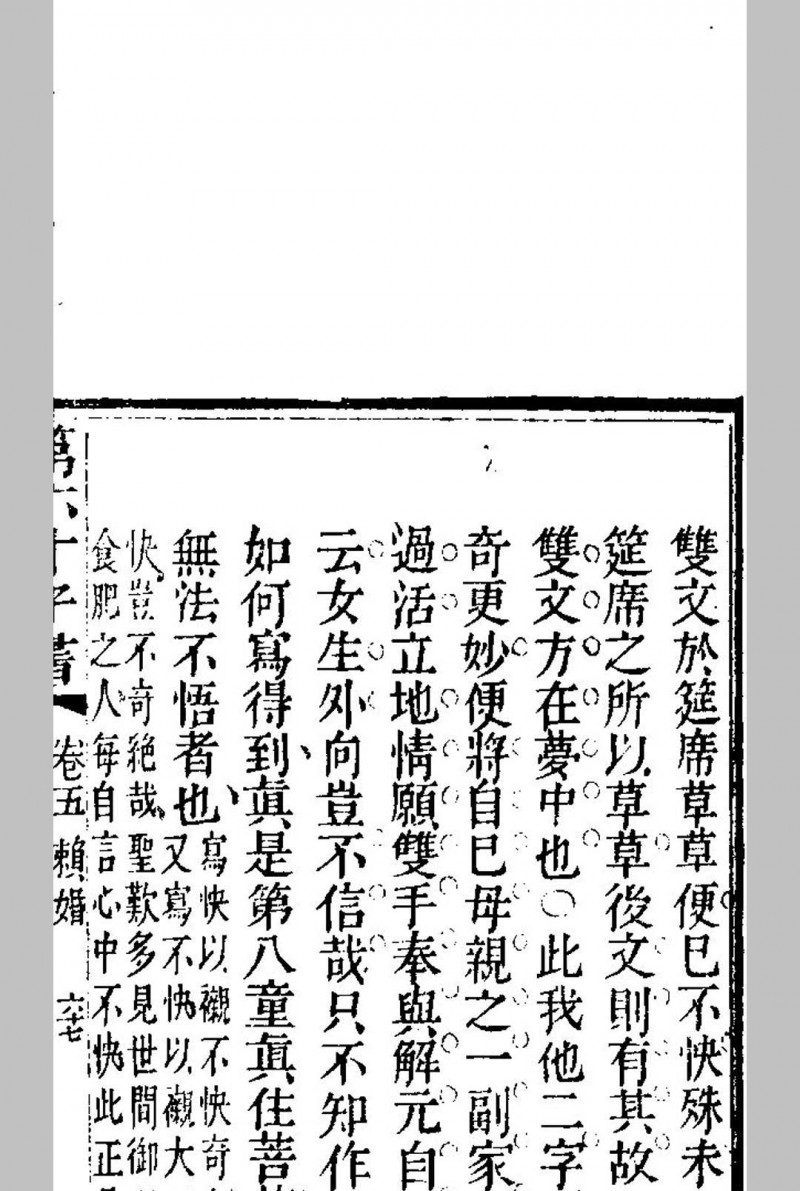 雙文於筵席草草便已不快殊未
筵席之所以草草後文則有其故
雙文方在夢中也〇此我他二字
奇更妙便將自己母親之一副家
過活立地情願雙手奉與解元自
云女生外向豈不信哉只不知作
如何寫得到眞是第八童眞住菩
無法不悟者也
寫快以襯不快奇
又寫不快以襯大
快豈不奇絶哉聖歎多見世間御
食肥之人每自言心中不快此正
第六才子書
卷五
賴婚
六十七